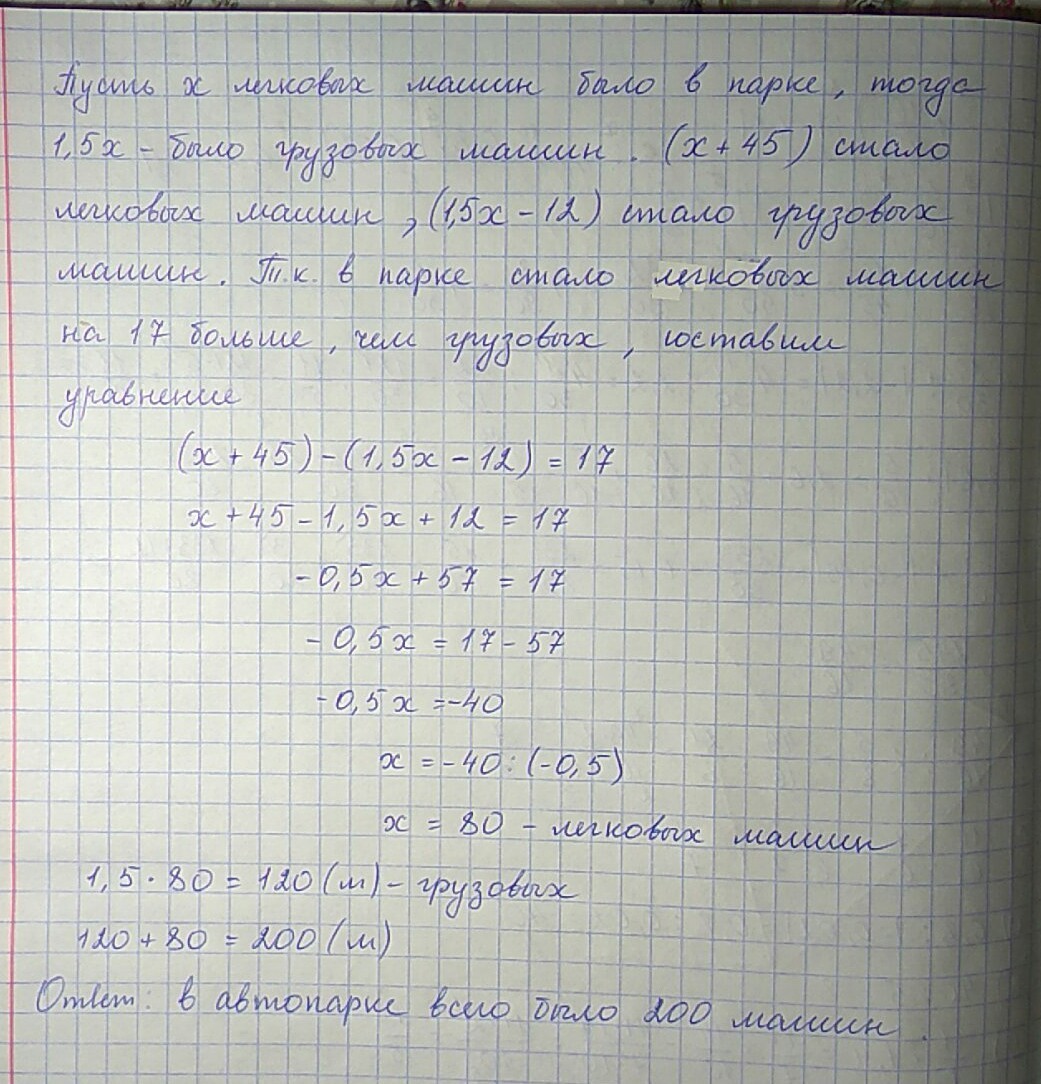 Пусть х легковых машин было в парке, тогда
1,5х - было грузовых машин. (х+45) стало
легковых машин, (1,5х-12) стало грузовых
машин. Т.к. в парке стало легковых машин
на 17 больше, чем грузовых, составим
уравнение
(х+45)-(1,5х-12)=17
х+45-1,5х+12=17
-0,5х+57=17
-0,5х=17-57
-0,5х=-40
х=-40:(-0,5)
х=80 - легковых машин
1,5·80=120(м)-грузовых
120+80=200(м)
Ответ: в автопарке всего было 200 машин.